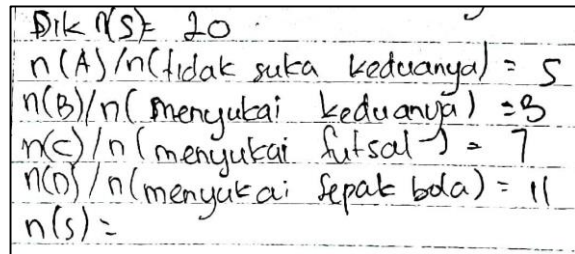 Dik n(S)= 20
n(A)/n(tidak suka keduanya) = 5
n(B)/n(menyukai keduanya) =3
n(C)/n(menyukai futsal) = 7
n(D)/n(menyukai sepak bola) = 11
n(s) =